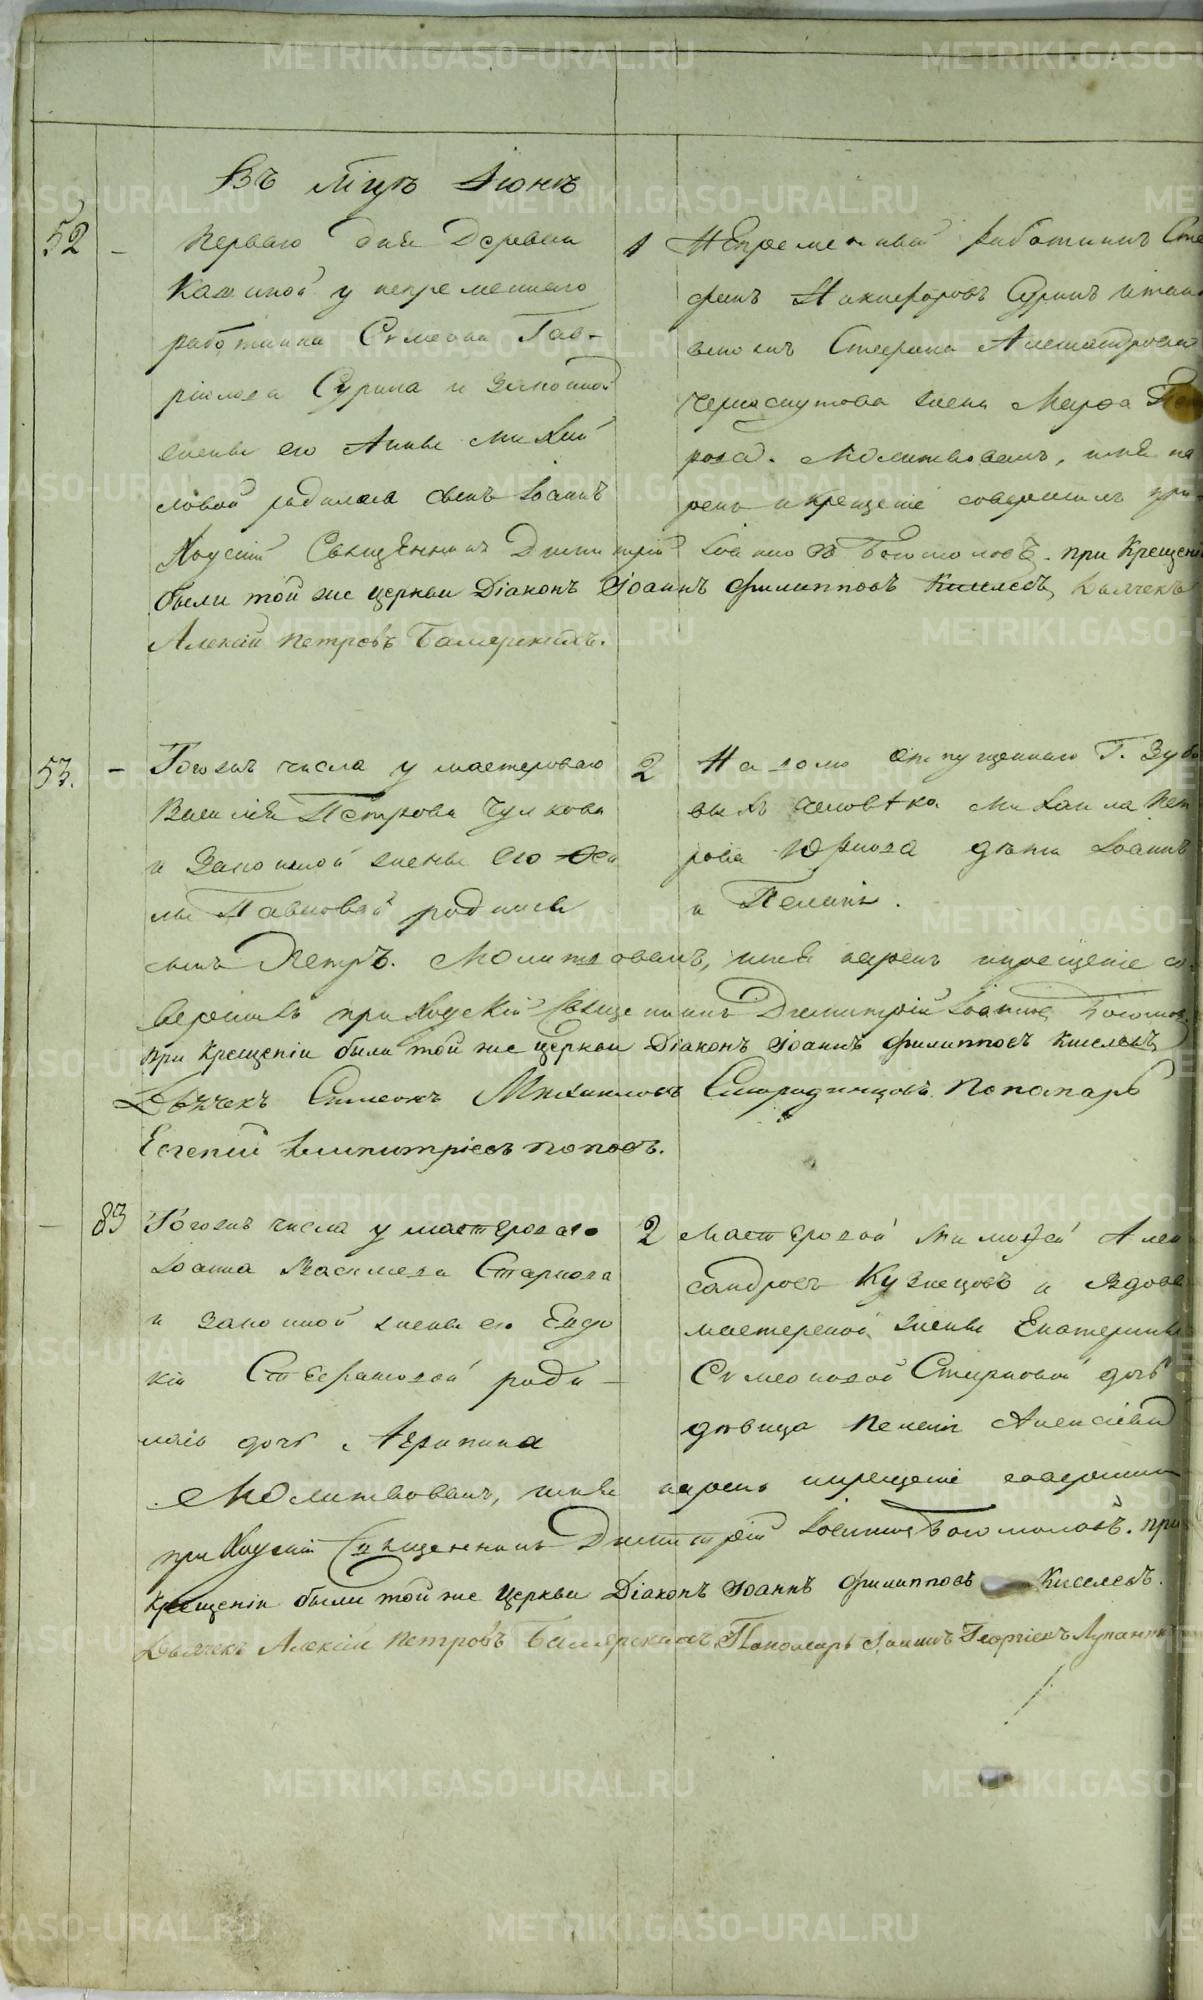 Въ Мцѣ Іюнѣ
52 - Перваго дня Деревни
Кашиной у непременнаго
работника Симеона Гав-
ріилова Сурина и законной
жены его Анны Михай
ловой родился сынъ Іоаннъ
1 Непременный работникъ Сте
фанъ Никифоровъ Суринъ и
Стефана Александрова
жена Марѳа
рова. Молитвовалъ, имя на
рекъ и крещеніе совершилъ при-
ходскій Священникъ Димитрій Іоанновъ Богомоловъ. при Крещеніи
были той же церкви Діаконъ Іоаннъ Филипповъ Киселевъ, Дьячекъ
Алексій Петровъ
53. - Тогожъ числа у мастероваго
Василія Петрова Чулкова
и законной жены его
Павловой родился
сынъ Петръ.
2 На волю отпущеннаго Г. Зубо
выхъ человѣка Михаила Пет
рова дѣти Іоаннъ
и
Молитвовалъ, имя нарекъ и крещеніе со-
вершилъ приходскій Священникъ Димитрій Іоанновъ Богомоловъ
при Крещеніи были той же церкви Діаконъ Іоаннъ Филипповъ Киселевъ
Дьячекъ Симеонъ Михайловъ Смородинцовъ. Пономарь
Евгеній Димитріевъ Поповъ.
- 83 Тогожъ числа у мастероваго
Іоанна Васильева
и законной жены его Евдо
кіи Стефановой роди-
лась дочь Агрипина
2 мастеровой Тимофей Алек
сандровъ Кузнецовъ и вдовы
мастерской жены Екатерины
Симеоновой дочь
дѣвица Алексіева
Молитвовалъ, имя нарекъ и крещеніе совершилъ
приходскій Священникъ Димитрій Іоанновъ Богомоловъ. при
Крещеніи были той же Церкви Діаконъ Іоаннъ Филипповъ Киселевъ.
Дьячекъ Алексій Петровъ Пономарь Іоаннъ Георгіевъ
METRIKI.GASO-URAL.RU